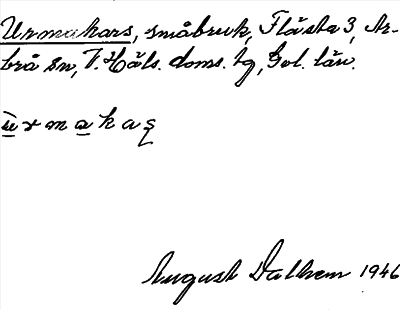 Urmakars, småbruk, Flästa 3, Ar-
brå sn, V. Häls. doms. tg, Gvl. län.
u̲̇r m a̲ k a ş
August Dalhem 1946